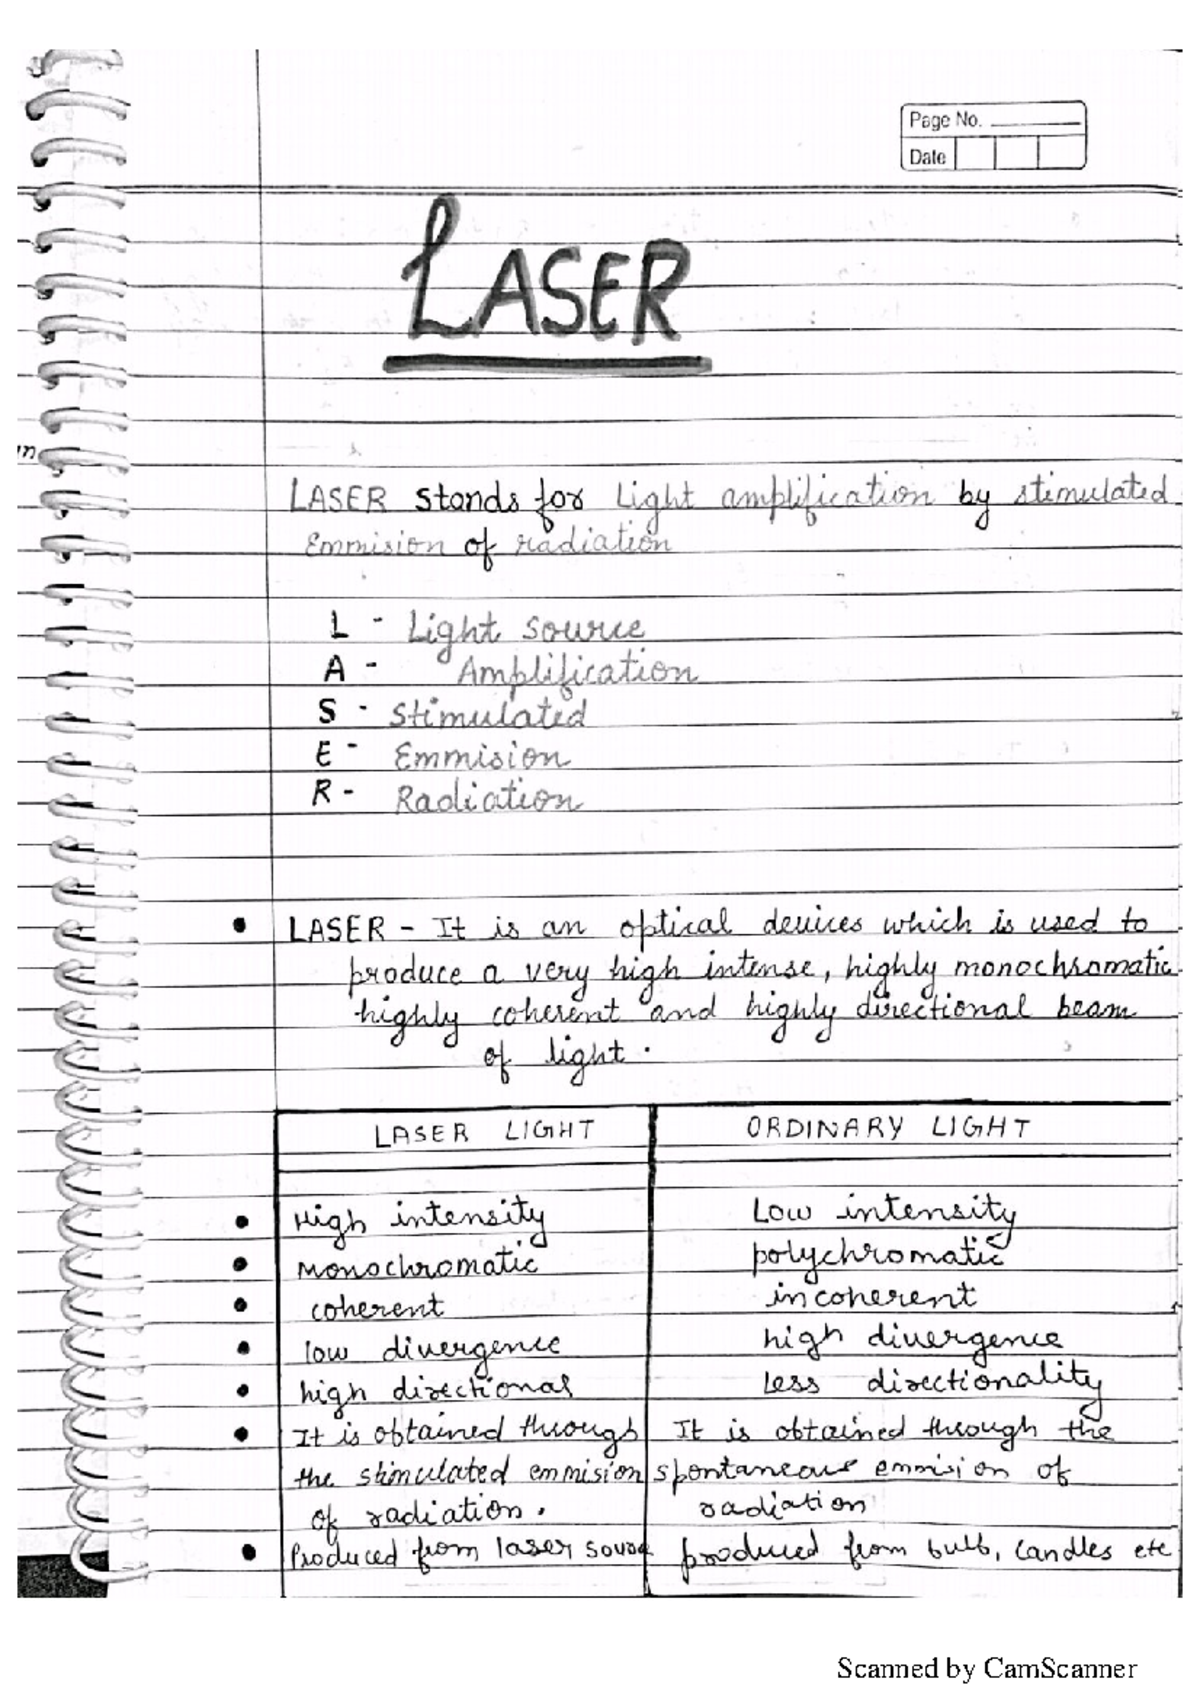 Page No.
Date
LASER
LASER stands for Light amplification by stimulated
Emmision of radiation
L - Light source
A - Amplification
S - Stimulated
E - Emmision
R - Radiation
• LASER - It is an optical devices which is used to
produce a very high intense, highly monochromatic
highly coherent and highly directional beam
of light.
LASER LIGHT ORDINARY LIGHT
• High intensity Low intensity
• monochromatic polychromatic
• coherent incoherent
• low divergence high divergence
• high directional Less directionality
• It is obtained through It is obtained through the
the stimulated emmision spontaneous emmision of
of radiation. radiation
• Produced from laser produced from bulb, candles etc
Scanned by CamScanner